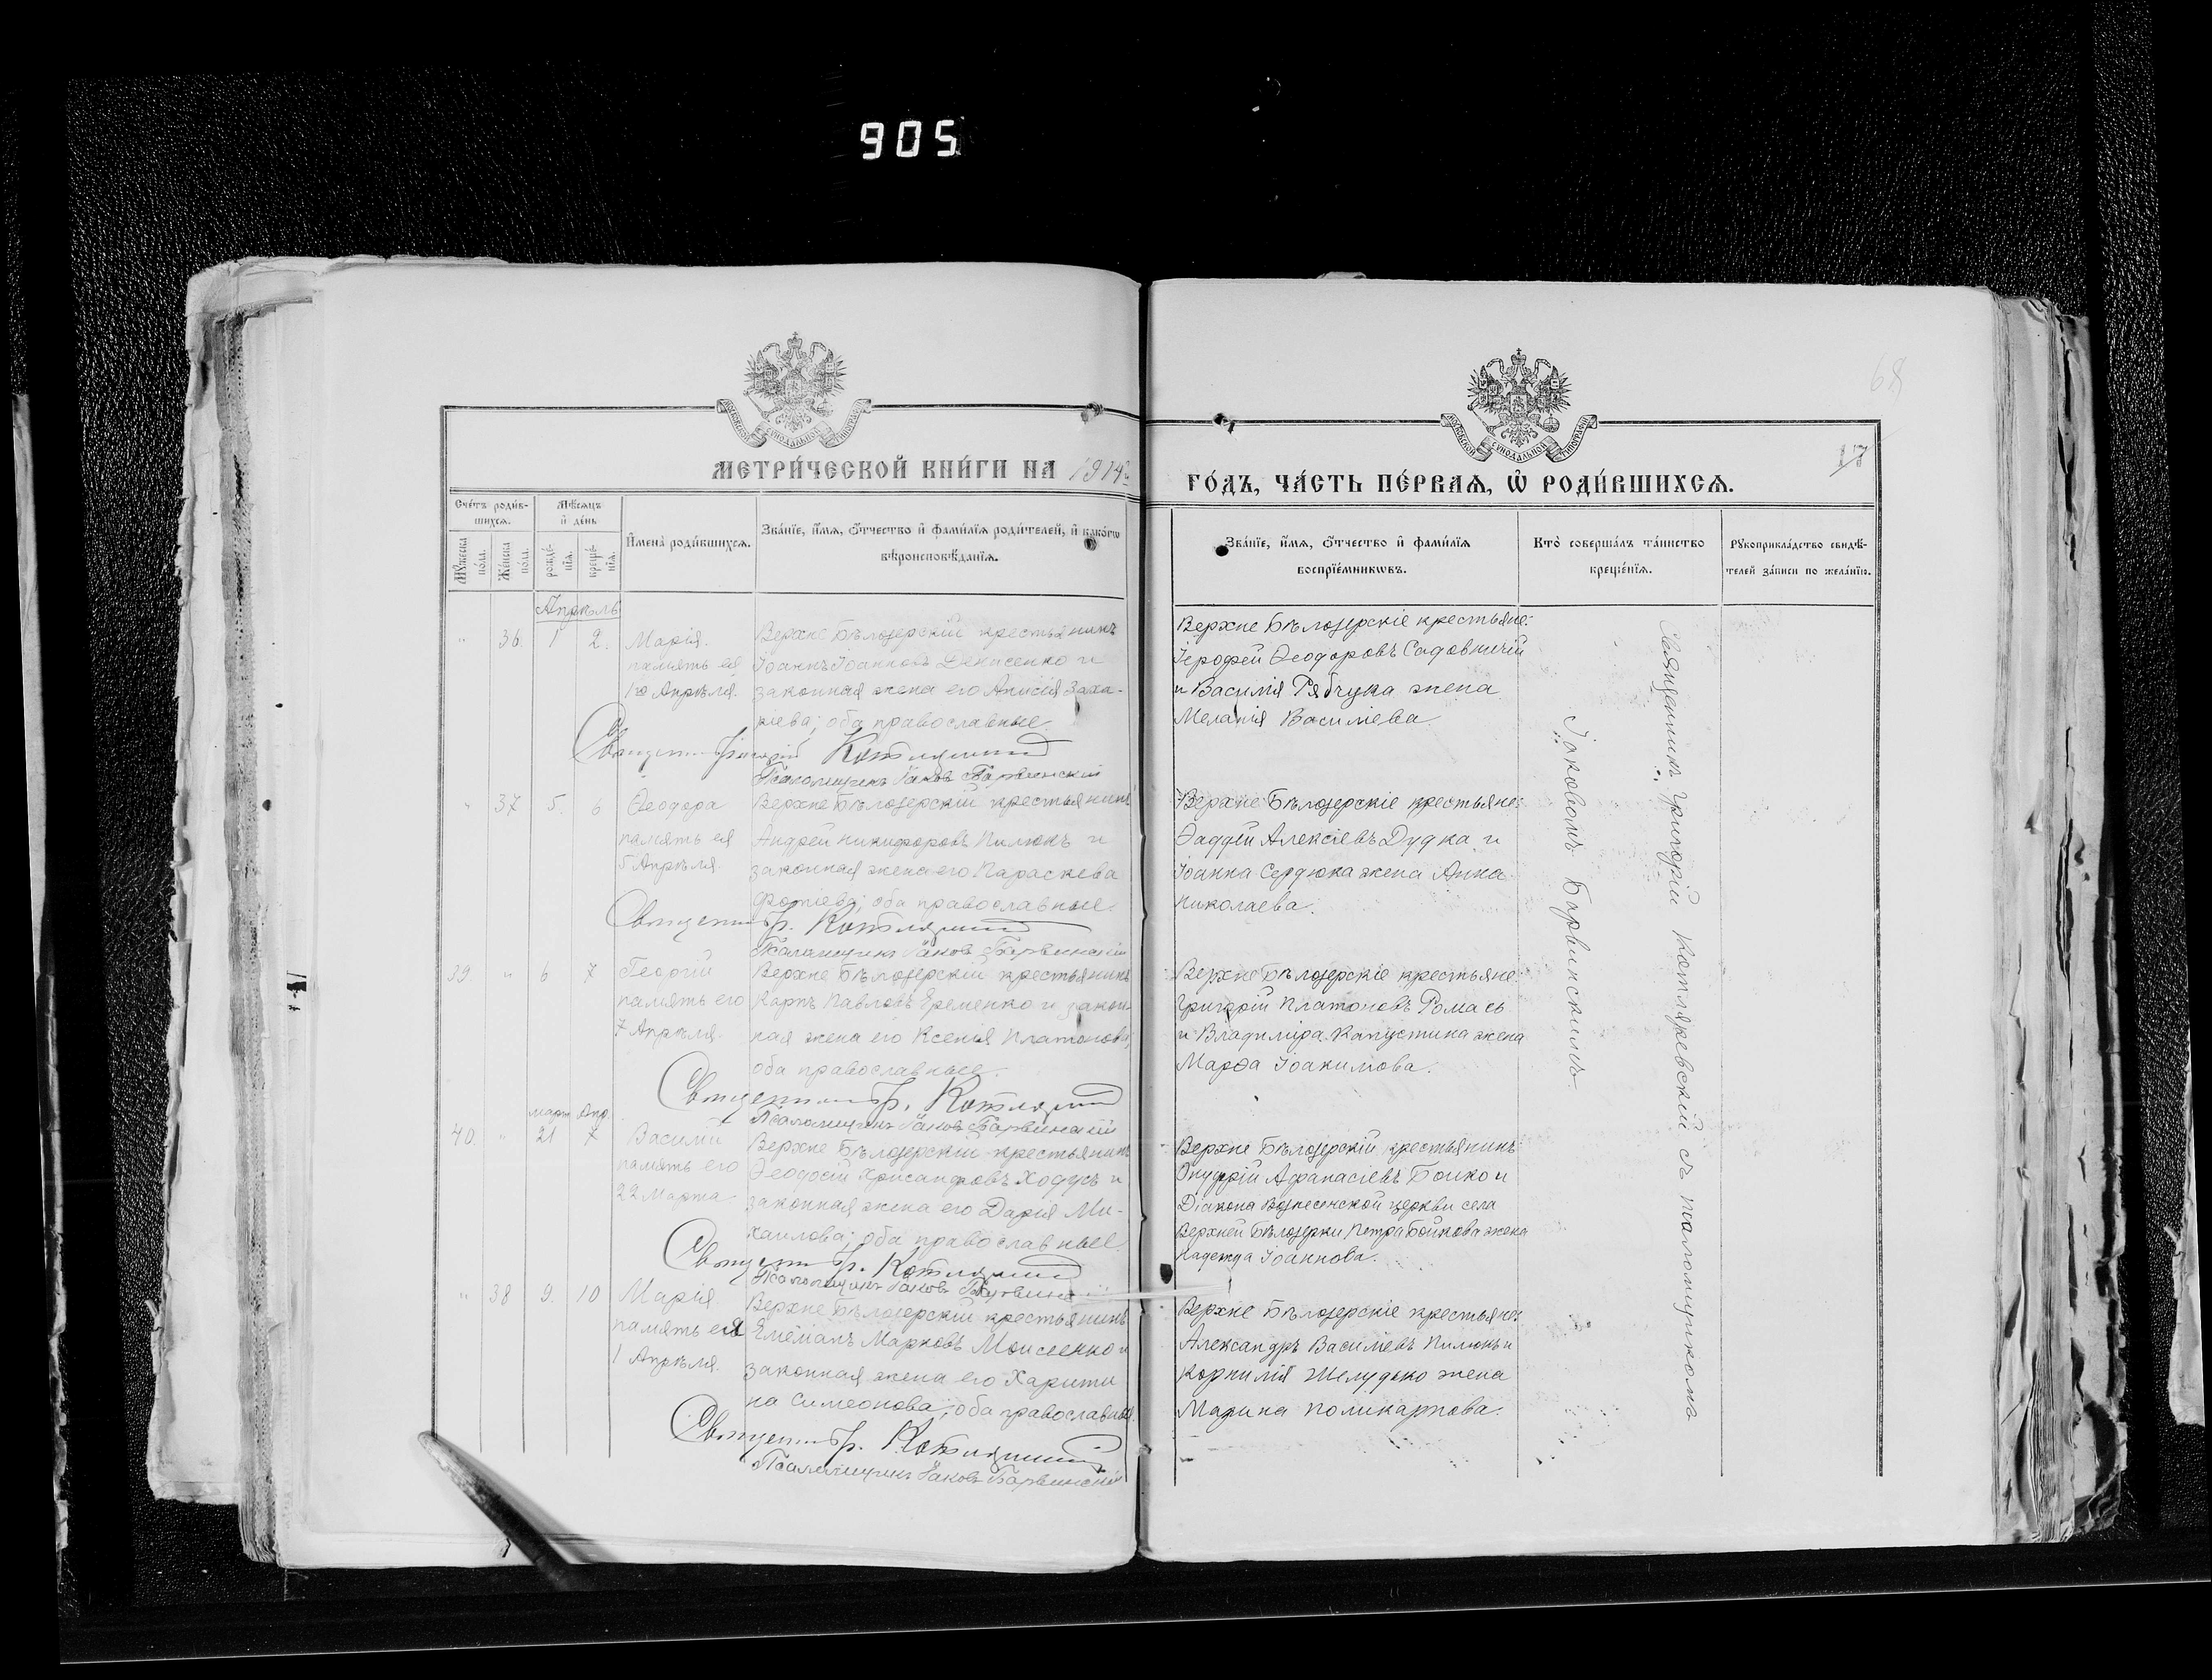 905
68
17
МОСКОВСКОЙ СѴНОДАЛЬНОЙ ТИПОГРАФІИ
МОСКОВСКОЙ СѴНОДАЛЬНОЙ ТИПОГРАФІИ
МЕТРИ́ЧЕСКОЙ КНИ́ГИ НА 1914
ГО́ДЪ, ЧА́СТЬ ПЕ́РВАѦ, Ѡ҆ РОДИ́ВШИХСѦ.
Сче́тъ роди́в-
шихсѧ.
Мꙋ́жеска
по́ла.
Же́нска
по́ла.
Мѣ́сѧцъ
и҆ де́нь
рожде́-
нїѧ.
креще́-
нїѧ.
И҆мена̀ роди́вшихсѧ.
Зва́нїе, и҆́мѧ, ѻ҆́тчество и҆ фами́лїѧ роди́телей, и҆ како́гѡ
вѣроисповѣ́данїѧ.
Зва́нїе, и҆́мѧ, ѻ҆́тчество и҆ фами́лїѧ
воспрїе́мникѡвъ.
Кто̀ соверша́лъ та́инство
креще́нїѧ.
Рꙋкоприкла́дство свидѣ́-
телей за́писи по жела́нїю.
Апрѣль
" 36. 1 2. Марія.
память ея
1го Апрѣля.
Верхне Бѣлозерскій крестьянинъ
Іоаннъ Іоанновъ Денисенко и
законная жена его Анисія Заха-
ріева; оба православные
Священникъ Григорій Котляревскій
Псаломщикъ Іаковъ Барвинскій
Верхне Бѣлозерскіе крестьяне:
Іерофей Ѳеодоровъ Садовничій
и Василія Рябчука жена
Меланія Василіева.
" 37 5. 6 Ѳеодора
память ея
5 Апрѣля.
Верхне Бѣлозерскій крестьянинъ
Андрей Никифоровъ Пилюкъ и
законная жена его Параскева
Фотіева; оба православные.
Священникъ Гр. Котляревскій
Псаломщикъ Іаковъ Барвинскій
Верхне Бѣлозерскіе крестьяне:
Ѳаддей Алексіевъ Дудка и
Іоанна Сердюка жена Анна
Николаева.
39 " 6 7 Георгій
память его
7 Апрѣля.
Верхне Бѣлозерскій крестьянинъ
Карпъ Павловъ Еременко и закон-
ная жена его Ксенія Платонова,
оба православные.
Священникъ Гр. Котляревскій
Псаломщикъ Іаковъ Барвинскій
Верхне Бѣлозерскіе крестьяне:
Григорій Платоновъ Ромась
и Владиміра Капустина жена
Марѳа Іоакимова.
март Апр.
40. " 21 7 Василій
память его
22 Марта
Верхне Бѣлозерскій крестьянинъ
Ѳеодосій Хрисанфовъ Ходусъ и
законная жена его Дарія Ми-
хаилова; оба православные.
Священникъ Гр. Котляревскій
Псаломщикъ Іаковъ Барвинскій
Верхне Бѣлозерскій крестьянинъ
Онуфрій Афанасіевъ Бойко и
Діакона Вознесенской церкви села
Верхней Бѣлозерки Петра Бойкова жена
Надежда Іоаннова.
" 38 9. 10 Марія.
память ея
1 Апрѣля.
Верхне Бѣлозерскій крестьянинъ
Емеліанъ Марковъ Моисеенко и
законная жена его Харити
на Симеонова; оба православные.
Священникъ Гр. Котляревскій
Псаломщикъ Іаковъ Барвинскій
Верхне Бѣлозерскіе крестьяне:
Александръ Василіевъ Пилюкъ и
Корнилія Шелудько жена
Марина Поликарпова.
Священникъ Григорій Котляревскій съ псаломщикомъ
Іаковомъ Барвинскимъ